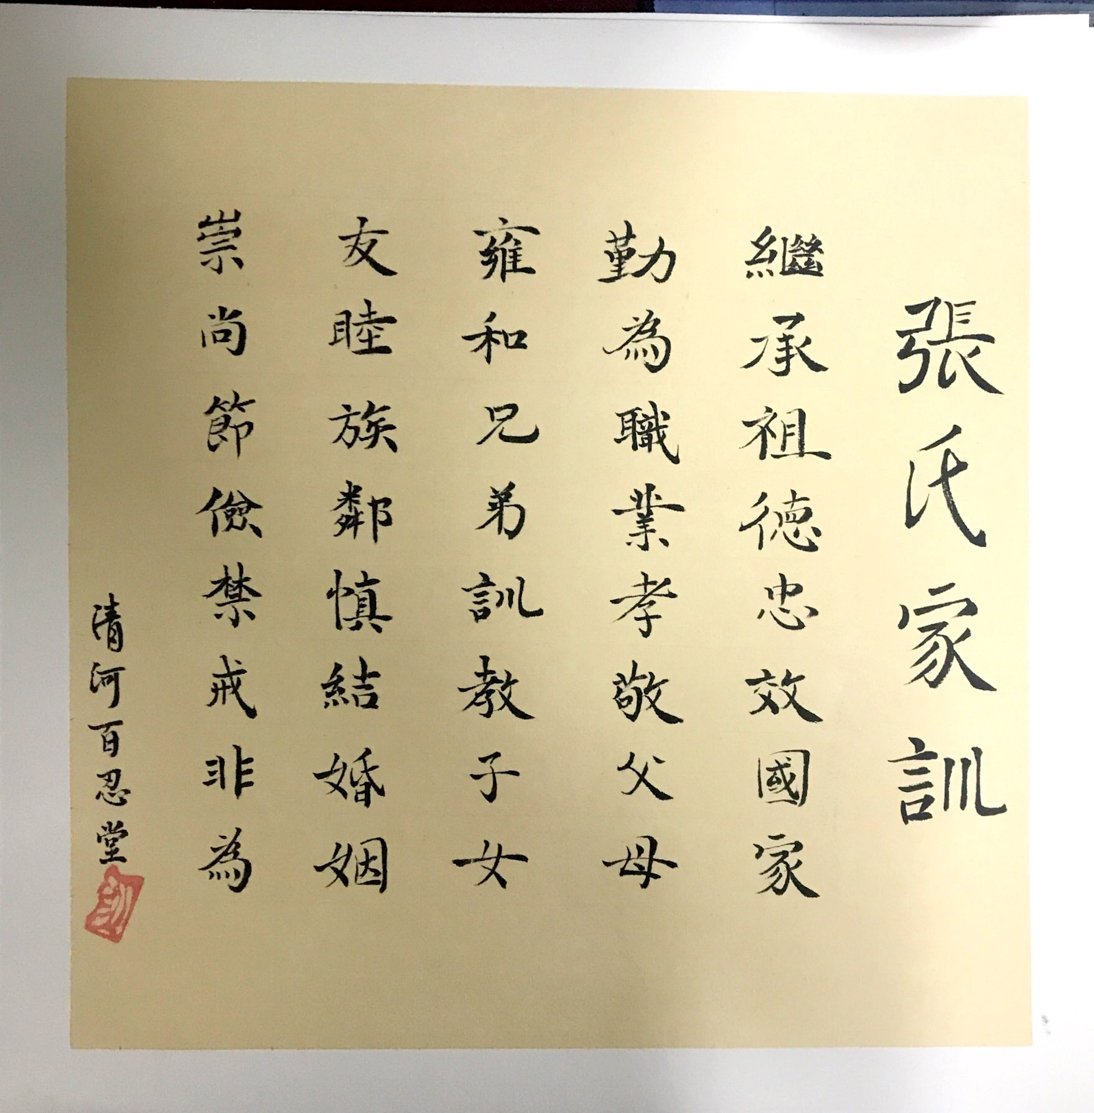 張氏家訓
繼承祖德忠效國家
勤為職業孝敬父母
雍和兄弟訓教子女
友睦族鄰慎結婚姻
崇尚節儉禁戒非為
清河百忍堂